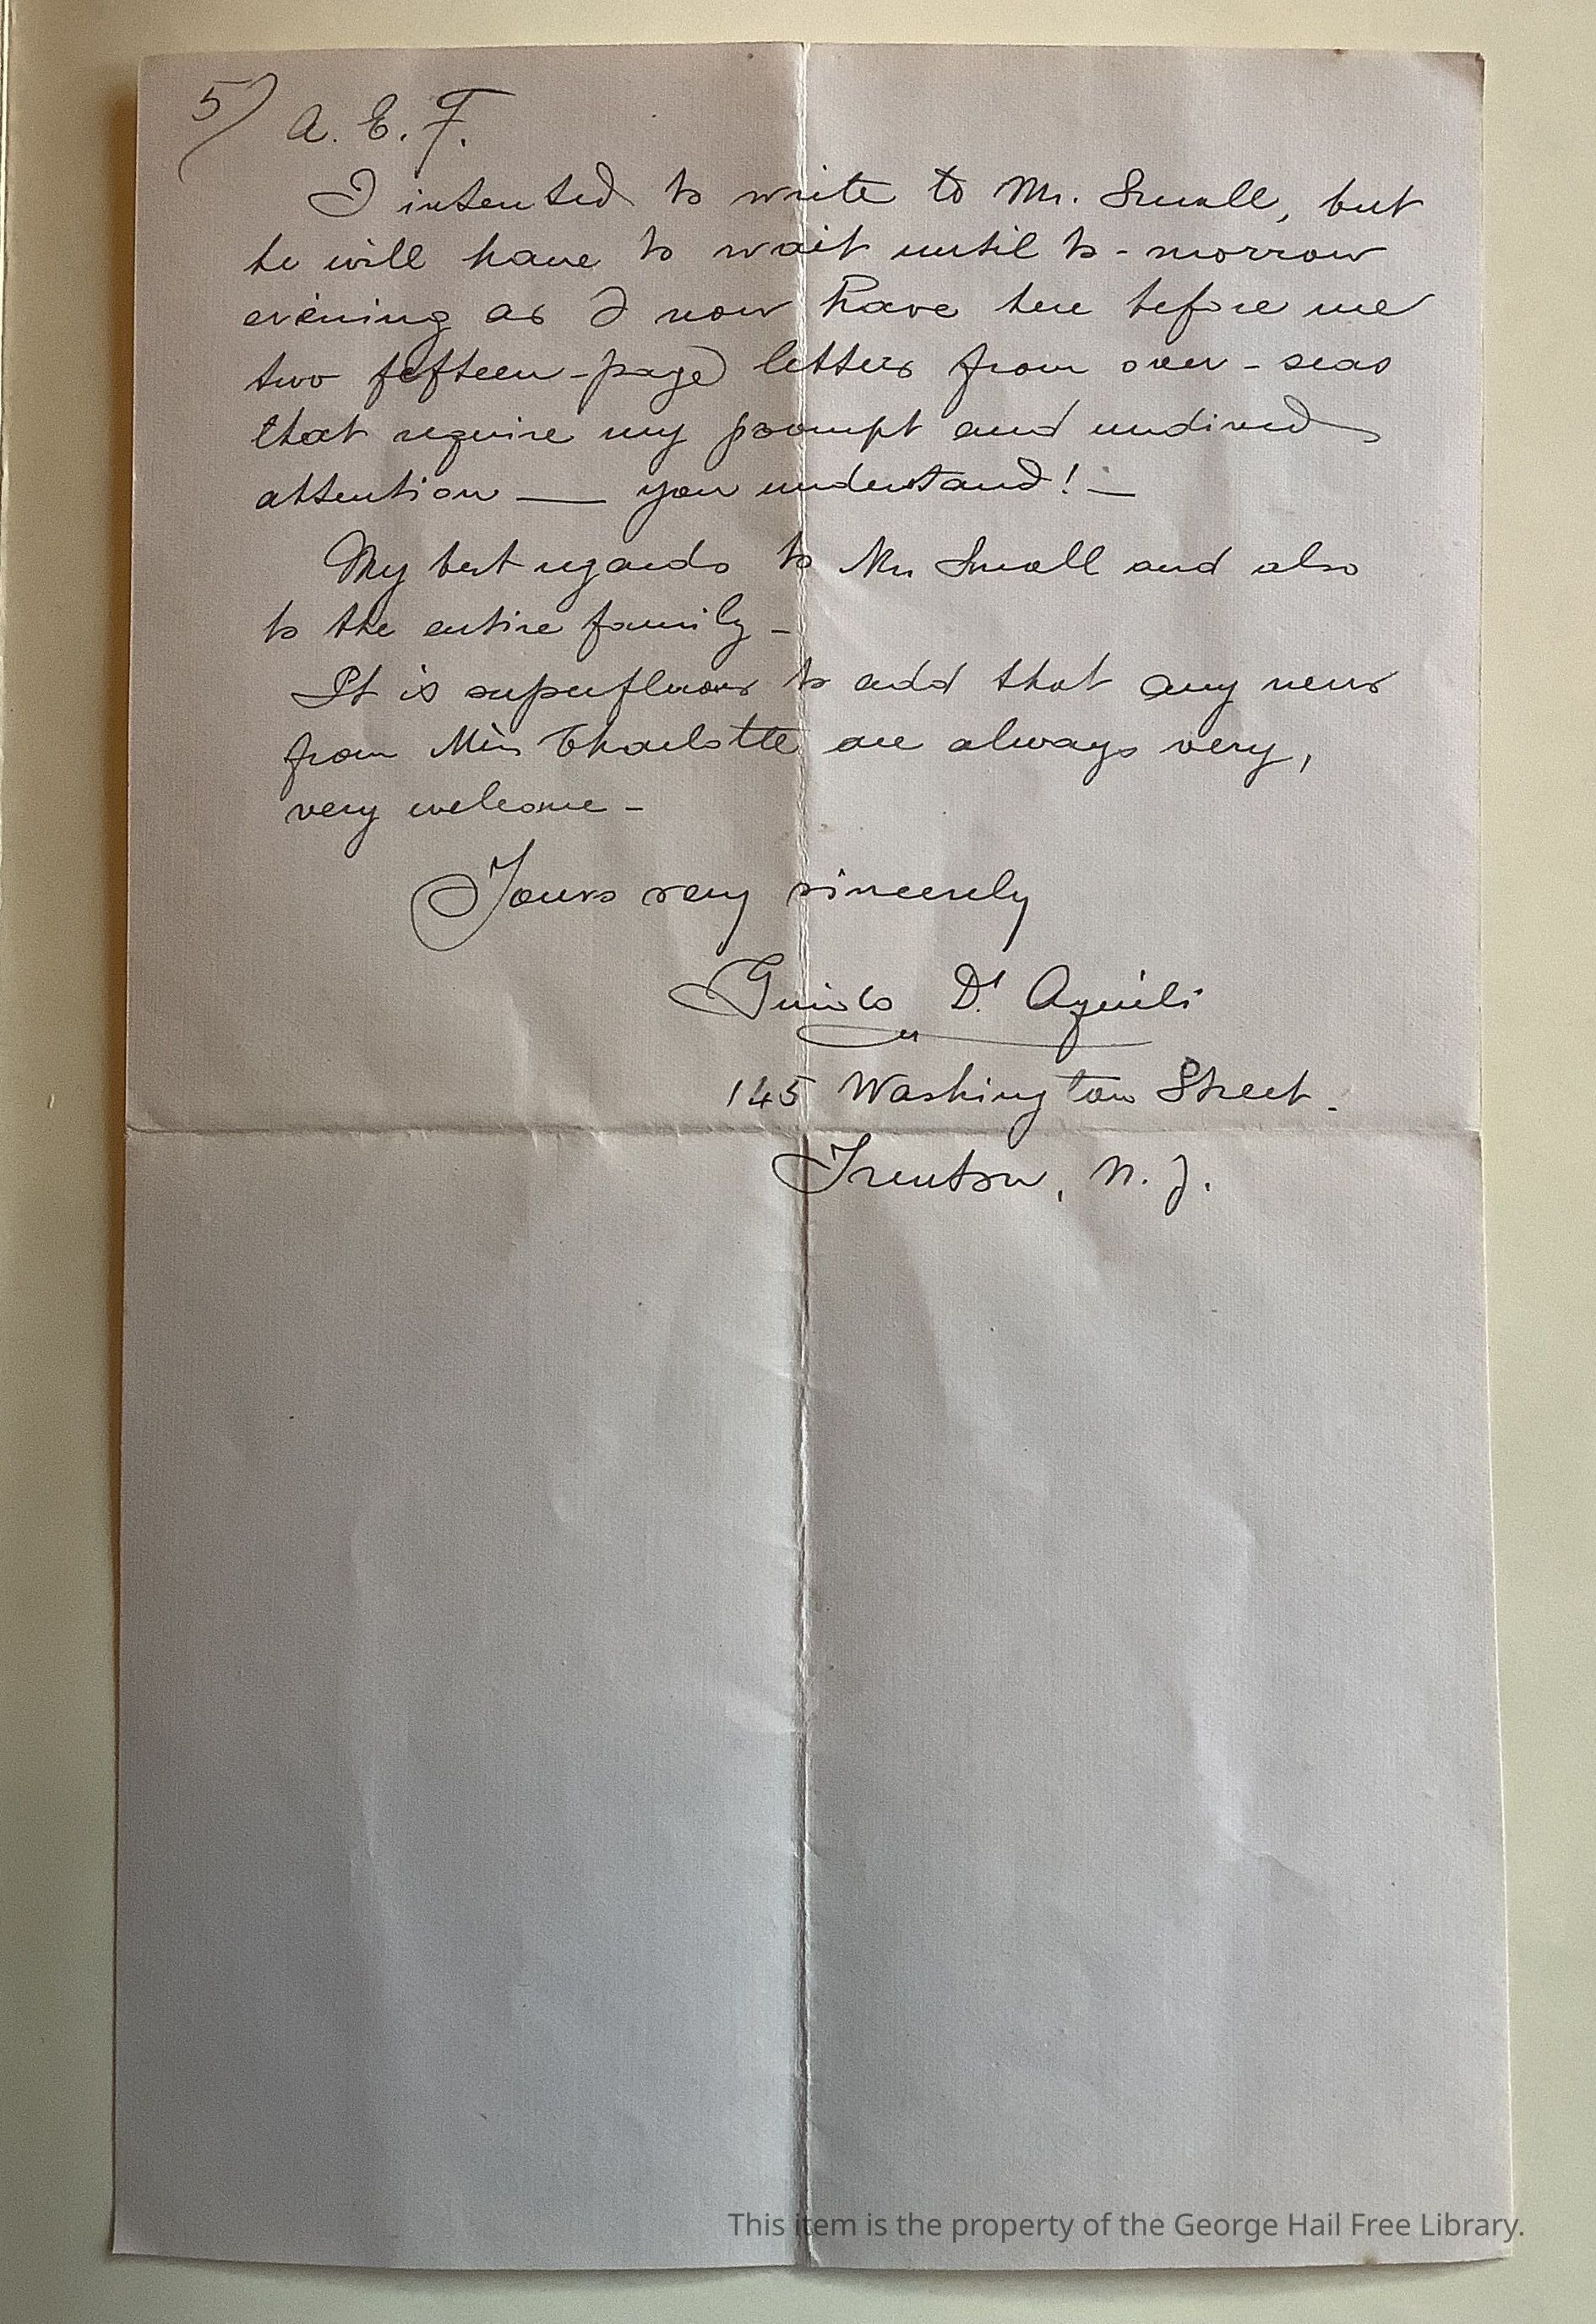 5) A. E. F.
I intented to write to Mr. Small, but
he will have to wait until to-morrow
evening as I now have here before me
two fefteen-page letters from over-seas
that require my prompt and undived
attention — you understand! —
My best regards to Mr Small and also
to the entire family -
It is superfluous to add that any news
from Miss Charlotte are always very,
very welcome -
Yours very sincerely
Guido D'Aquili
145 Washington Street.
Trenton, N. J.
This item is the property of the George Hail Free Library.